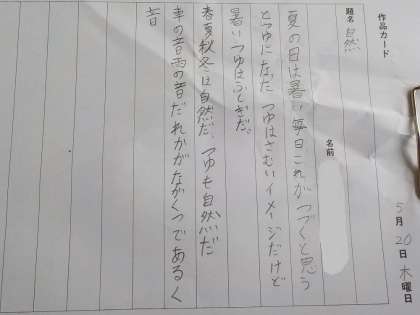 作品カード
5月20日木曜日
題名 自然
名前
夏の日は暑い毎日これがつづくと思う
とつゆになった つゆはさむいイメージだけど
暑いつゆはふしぎだ。
春夏秋冬は自然だ、つゆも自然だ
車の音雨の音だれかがながくつであるく
音